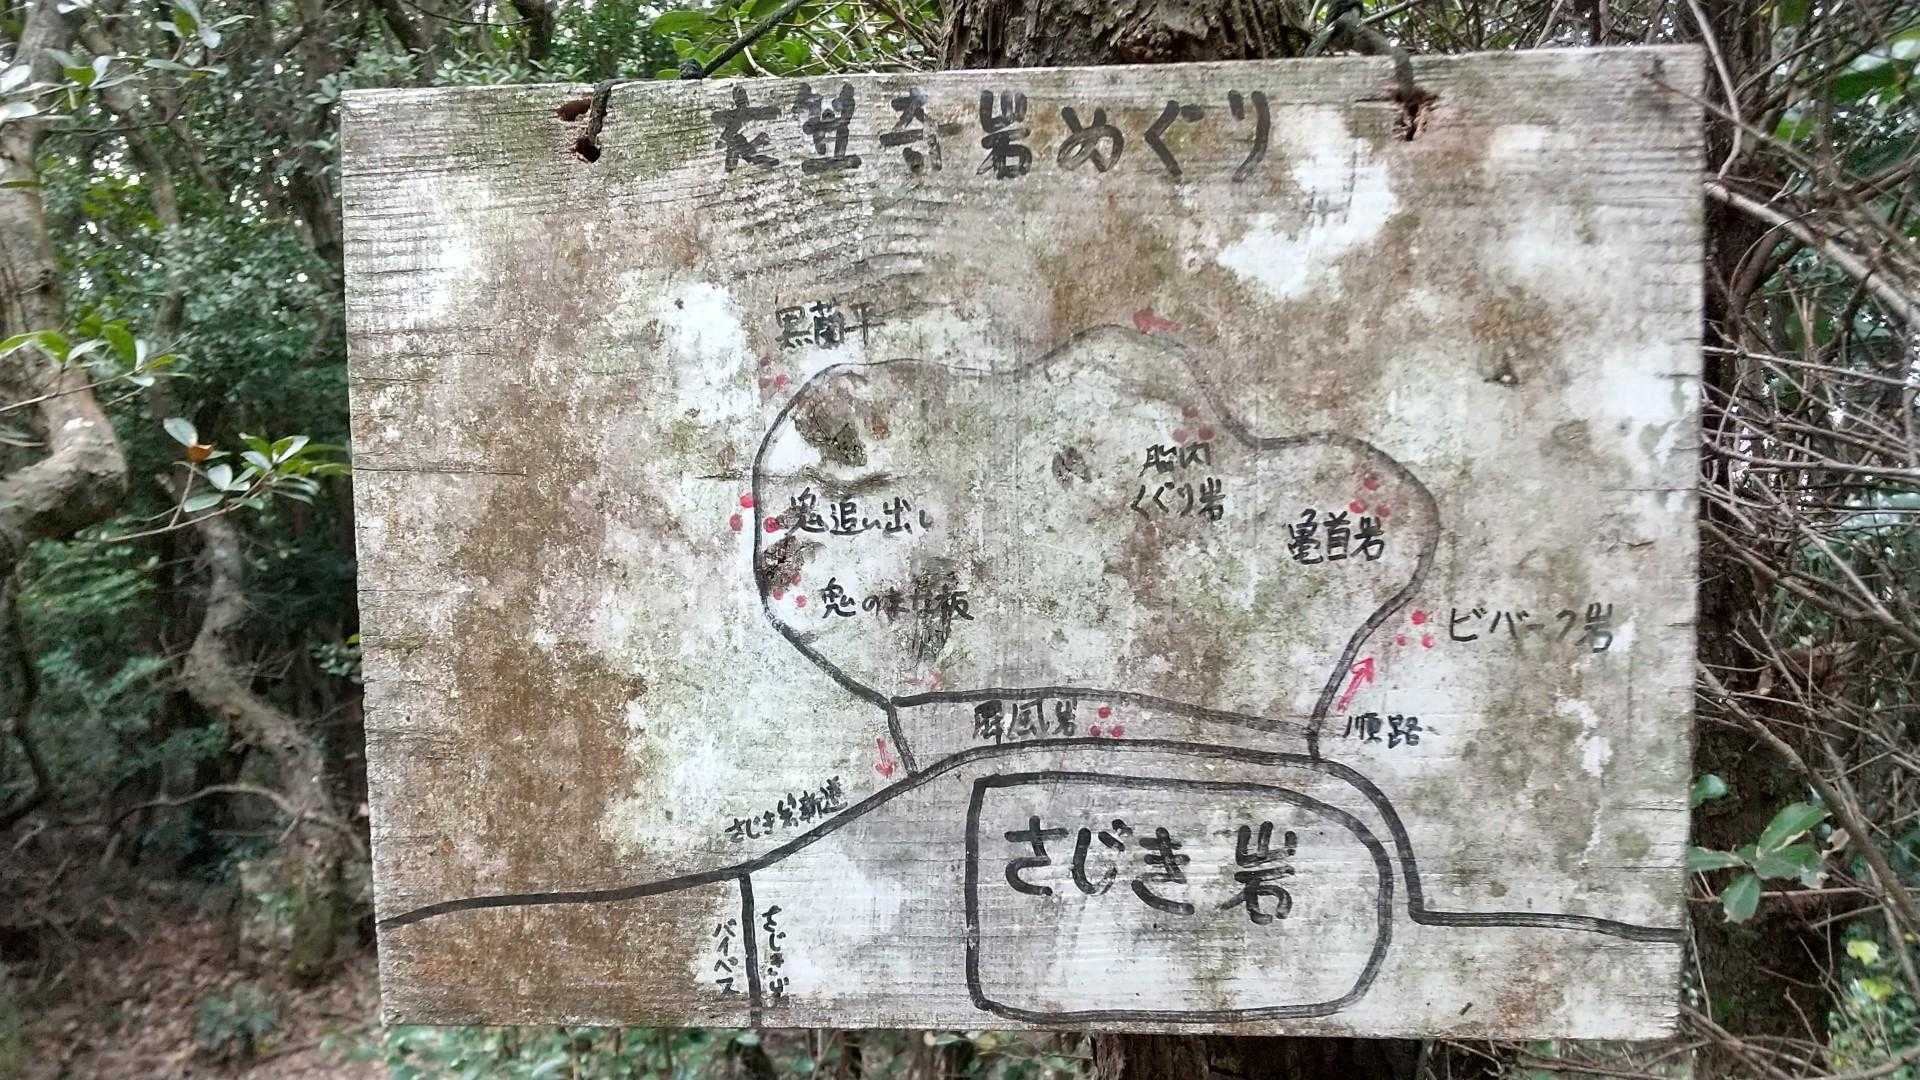 衣笠奇岩めぐり
黒蘭平
胎内
くぐり岩
鬼追い出し
亀首岩
鬼のまな板
ビバーク岩
屏風岩
順路
さじき岩新道
さじき岩
さじき岩
バイパス